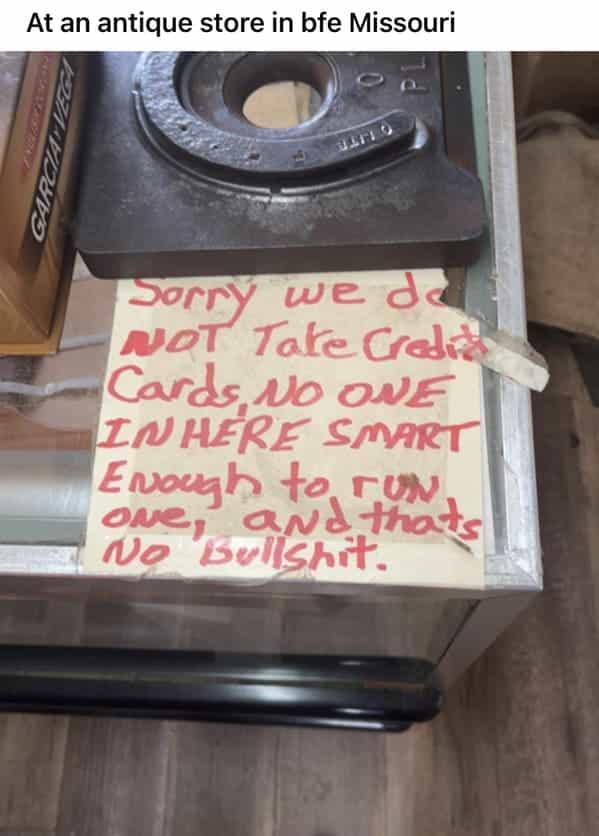 At an antique store in bfe Missouri
GARCIA Y VEGA
O PL
O LITE
Sorry we do
NOT Take Credit
Cards, NO ONE
IN HERE SMART
Enough to run
one, and thats
No Bullshit.